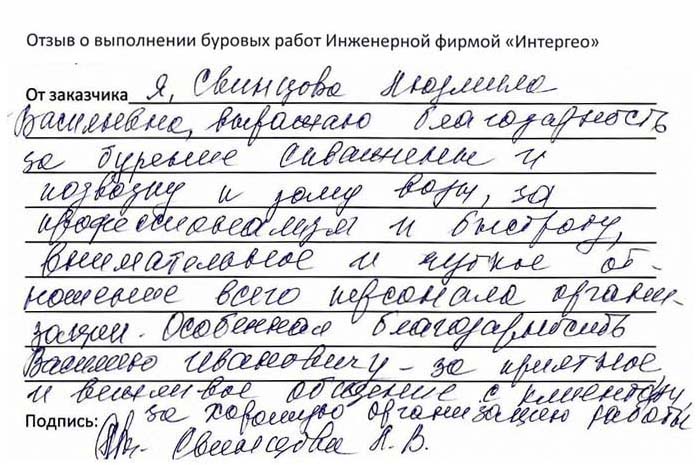 Отзыв о выполнении буровых работ Инженерной фирмой «Интергео»
От заказчика Я, Свинцова Людмила
Васильевна, выражаю благодарность
за бурение скважины и
подводку к дому воды, за
профессионализм и быстроту,
внимательное и чуткое от-
ношение всего персонала органи-
зации. Особенная благодарность
Василию Ивановичу - за приятное
и вежливое общение с клиентом,
за хорошую организацию работы
Подпись: Свинцова Л. В.